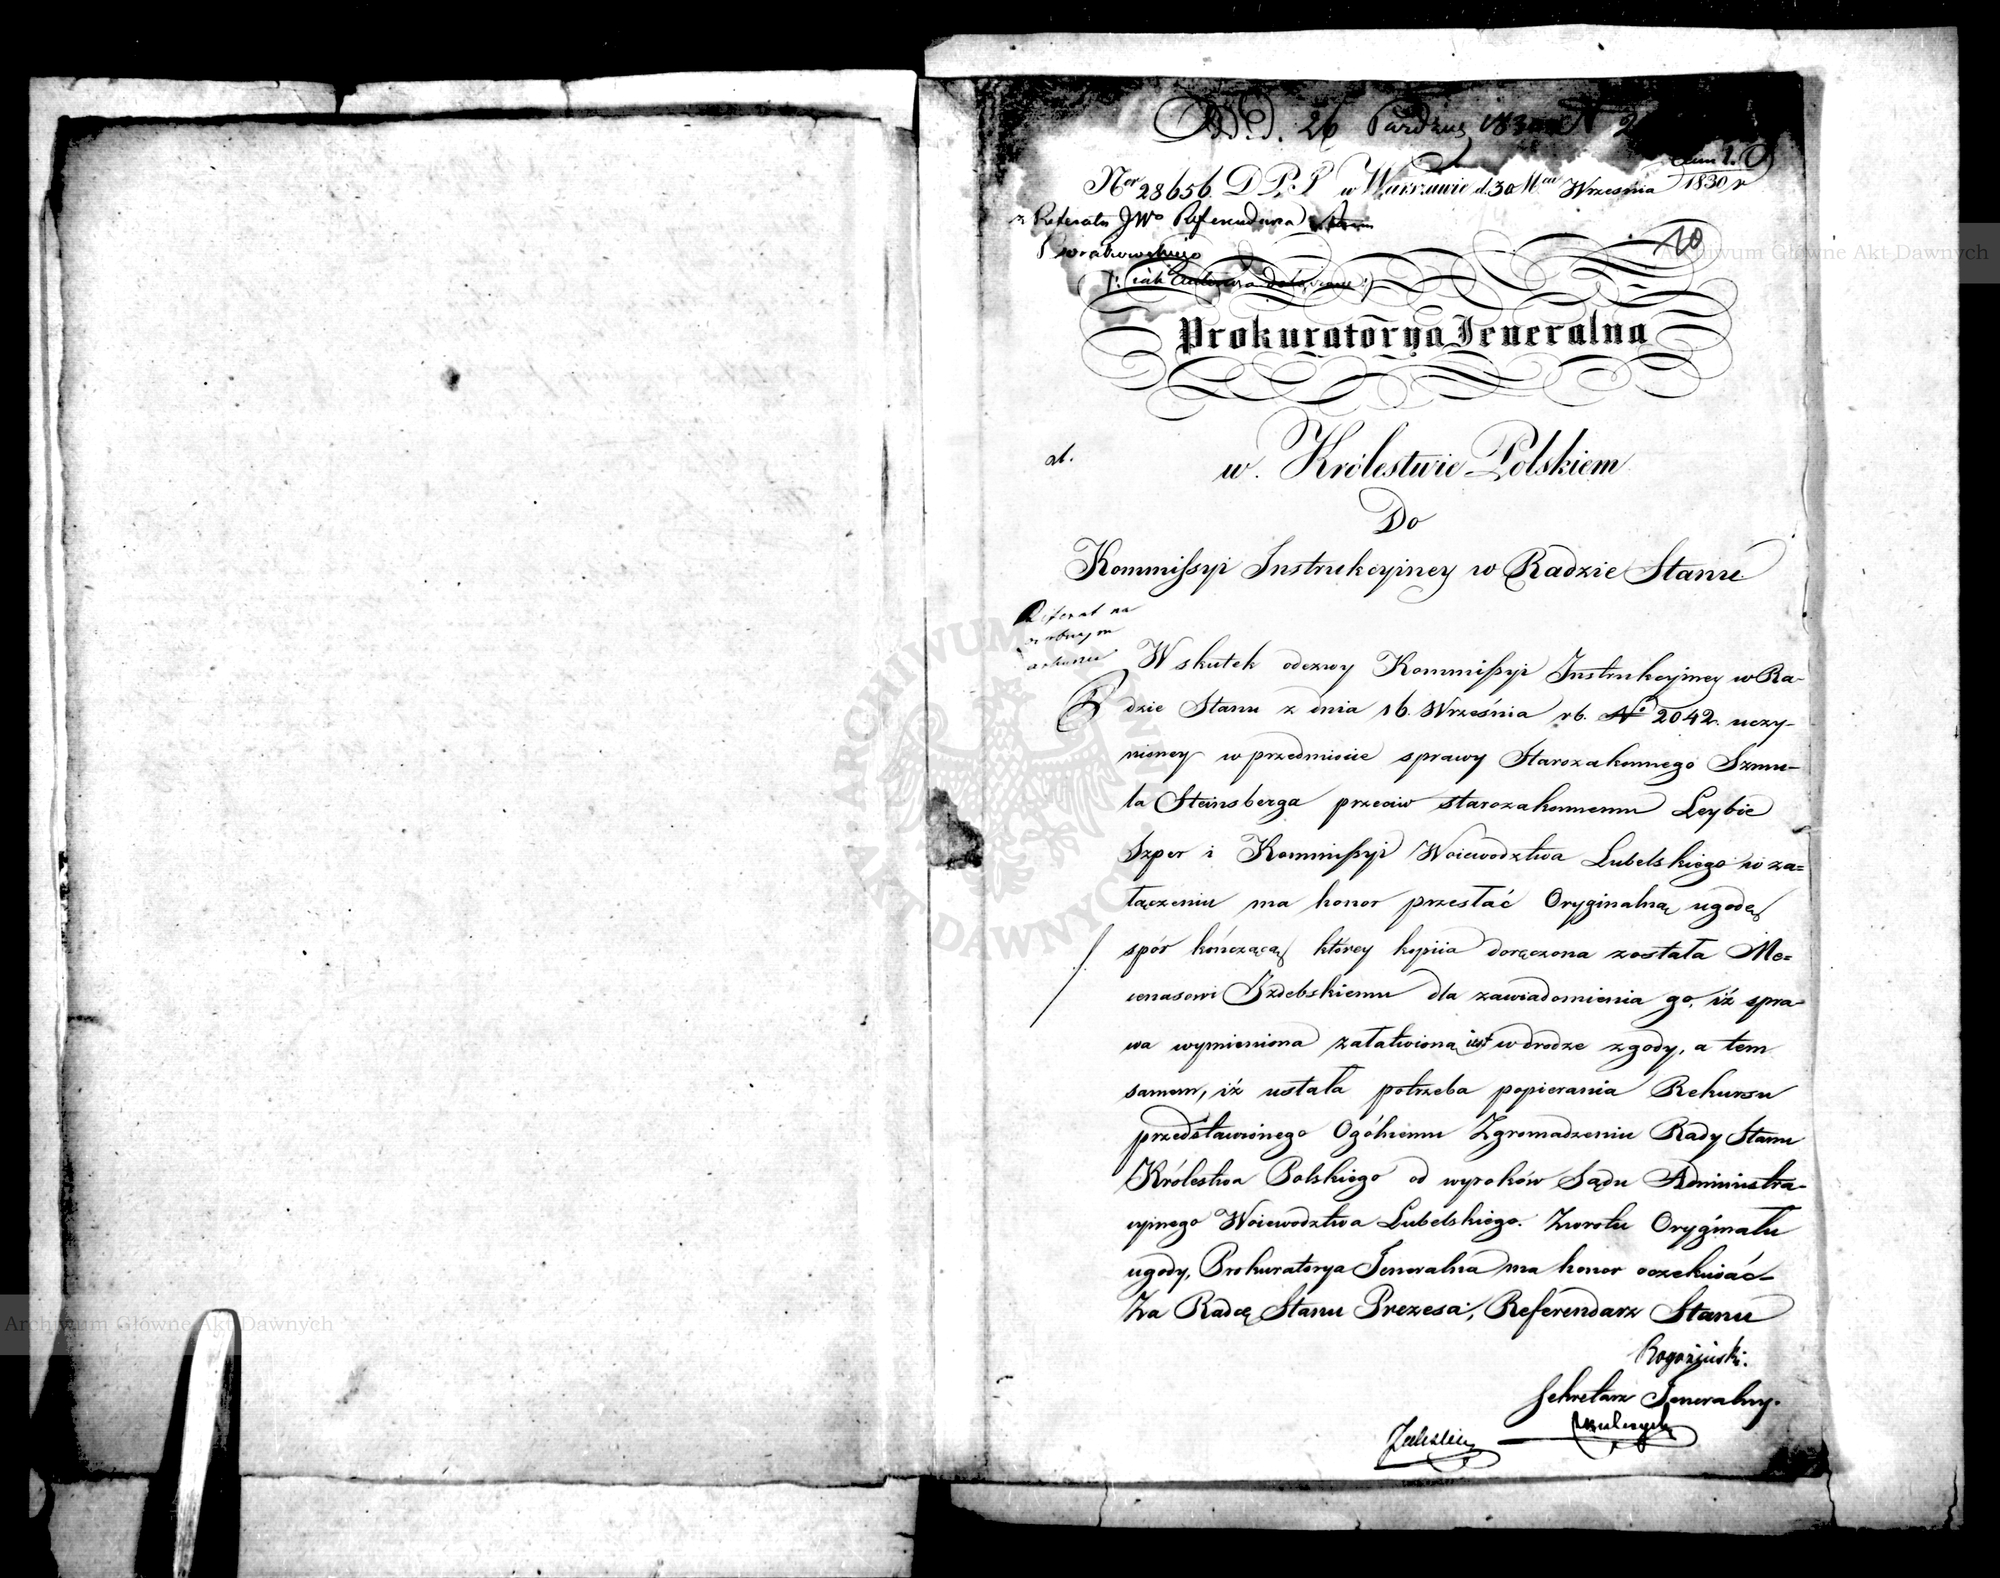 26 Pardzier 1830 N 2
Ner 28656. D P. P w Warszawie d. 30 Mca Września 1830 r
z Referatu JWo Referendarza
10
Prokuratorya Jeneralna
w Królestwie Polskiem
Do
Kommissyi Instrukcyiney w Radzie Stanu
Referat na
osobnym
arkuszu
W skutek odezwy Kommissyi Instrukcyiney w Ra-
dzie Stanu z dnia 16. Września rb. No 2042. uczy-
nioney w przedmiocie sprawy Starozakonnego Szmu-
la Steinsberga przeciw starozakonnemu Leybie
Szper i Kommissyi Woiewodztwa Lubelskiego w za-
łączeniu ma honor przesłać Oryginalną ugodę
spór kończącą którey kopiia doręczona została Me-
cenasowi Izdebskiemu dla zawiadomienia go, iż spra-
wa wymieniona załatwiona iest w drodze zgody, a tem
samem, iż ustała potrzeba popierania Rekursu
przedstawionego Ogólnemu Zgromadzeniu Rady Stanu
Królestwa Polskiego od wyroków Sądu Administra-
cyinego Woiewodztwa Lubelskiego. Zwrotu Oryginału
ugody, Prokuratorya Jeneralna ma honor oczekiwać
Za Radcę Stanu Prezesa, Referendarz Stanu
Rogoziński.
Sekretarz Jeneralny.
Archiwum Główne Akt Dawnych
Archiwum Główne Akt Dawnych
ARCHIWUM GŁÓWNE AKT DAWNYCH